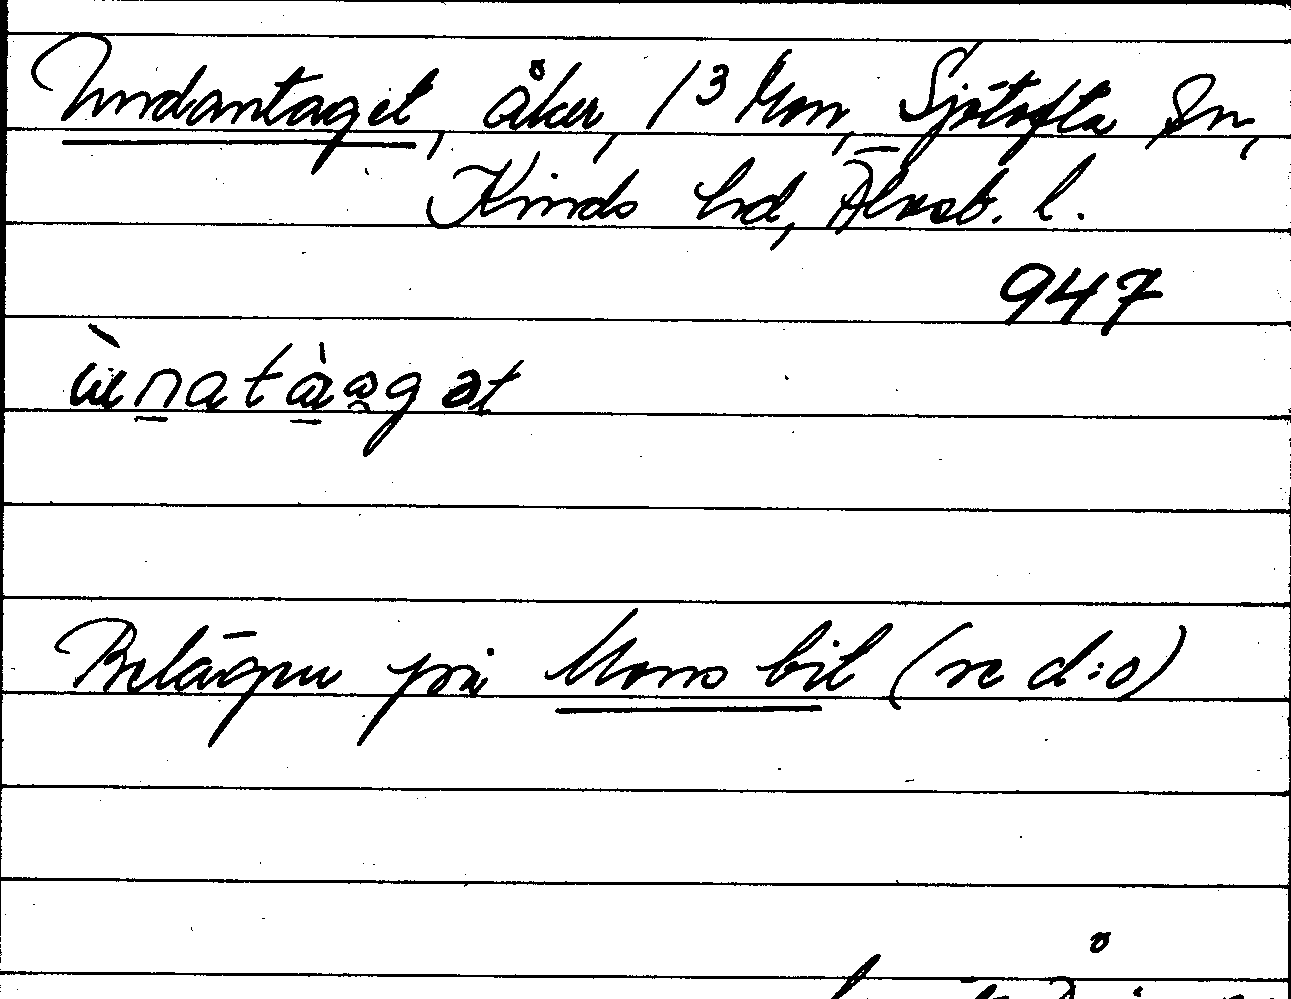 Undantaget, åker, 1³ Mon, Sjötofta sn,
Kinds hd, Älvsb. l.
947
ùnatàagət
Belägen på Mons bit (se d:o)